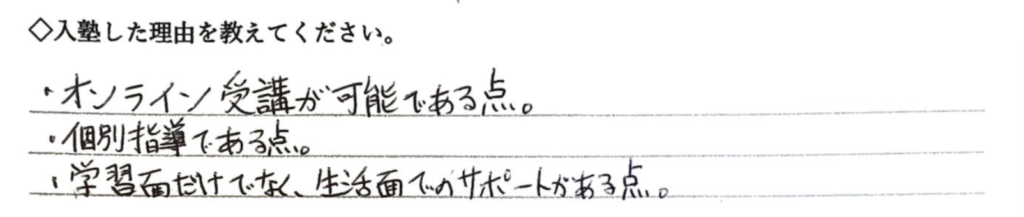 ◇入塾した理由を教えてください。
・オンライン受講が可能である点。
・個別指導である点。
・学習面だけでなく、生活面でのサポートがある点。